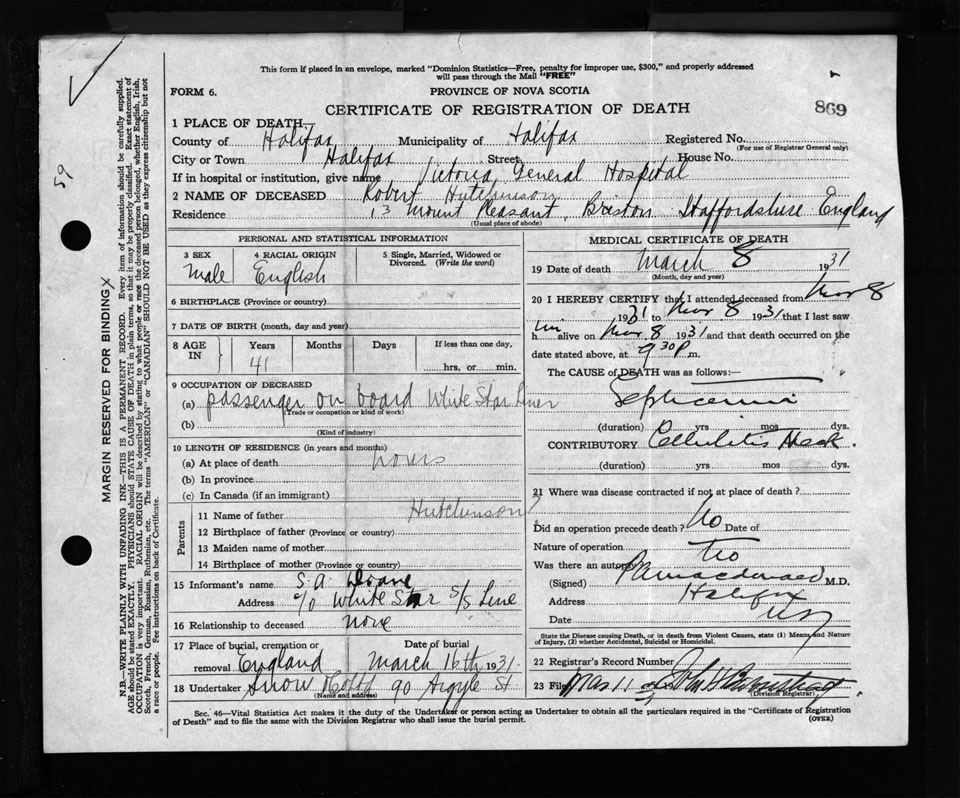 This form if placed in an envelope, marked "Dominion Statistics—Free, penalty for improper use, $300," and properly addressed
will pass through the Mail "FREE"
FORM 6.
PROVINCE OF NOVA SCOTIA
CERTIFICATE OF REGISTRATION OF DEATH
869
1 PLACE OF DEATH—
County of Halifax Municipality of Halifax Registered No.
(For use of Registrar General only)
City or Town Halifax Street House No.
If in hospital or institution, give name Victoria General Hospital
2 NAME OF DECEASED Robert Hutchinson
Residence 13 Mount Pleasant, Breston Staffordshire England
(Usual place of abode)
PERSONAL AND STATISTICAL INFORMATION
3 SEX 4 RACIAL ORIGIN 5 Single, Married, Widowed or
Divorced. (Write the word)
Male English
6 BIRTHPLACE (Province or country)
7 DATE OF BIRTH (month, day and year)
8 AGE IN Years Months Days If less than one day,
41 hrs. or min.
9 OCCUPATION OF DECEASED
(a) passenger on board White Star Liner
(Trade or occupation or kind of work)
(b)
(Kind of industry)
10 LENGTH OF RESIDENCE (in years and months)
(a) At place of death hours
(b) In province
(c) In Canada (if an immigrant)
Parents
11 Name of father Hutchinson
12 Birthplace of father (Province or country)
13 Maiden name of mother
14 Birthplace of mother (Province or country)
15 Informant's name S. A. Doane
Address c/o White Star S/S Line
16 Relationship to deceased none
17 Place of burial, cremation or Date of burial
removal England March 16th 1931
18 Undertaker Snow 90 Argyle St
(Name and address)
MEDICAL CERTIFICATE OF DEATH
19 Date of death March 8 1931
(Month, day and year)
20 I HEREBY CERTIFY that I attended deceased from Mar 8
1931 to Mar 8 1931 that I last saw
him alive on Mar 8 1931 and that death occurred on the
date stated above, at 9 30 P. m.
The CAUSE of DEATH was as follows:—
Septicemia
(duration) yrs mos dys.
CONTRIBUTORY Cellulitis Neck.
(duration) yrs mos dys.
21 Where was disease contracted if not at place of death?
Did an operation precede death? No Date of
Nature of operation
Was there an autopsy No
(Signed) M.D.
Address Halifax
Date NS
State the Disease causing Death, or in death from Violent Causes, state (1) Means and Nature
of Injury, (2) whether Accidental, Suicidal or Homicidal.
22 Registrar's Record Number
23 Filed Mar 11
(Division Registrar)
Sec. 46—Vital Statistics Act makes it the duty of the Undertaker or person acting as Undertaker to obtain all the particulars required in the "Certificate of Registration
of Death" and to file the same with the Division Registrar who shall issue the burial permit.
(OVER)
59
MARGIN RESERVED FOR BINDING X
N.B.—WRITE PLAINLY WITH UNFADING INK—THIS IS A PERMANENT RECORD. Every item of information should be carefully supplied.
AGE should be stated EXACTLY. PHYSICIANS should STATE CAUSE OF DEATH in plain terms, so that it may be properly classified. Exact statement of
OCCUPATION is very important. RACIAL ORIGIN will be described by stating to what people or race the deceased person belonged, whether English, Irish,
Scotch, French, German, Russian, Ruthenian, etc. The terms "AMERICAN" or "CANADIAN" SHOULD NOT BE USED as they express citizenship but not
a race or people. See instructions on back of Certificate.